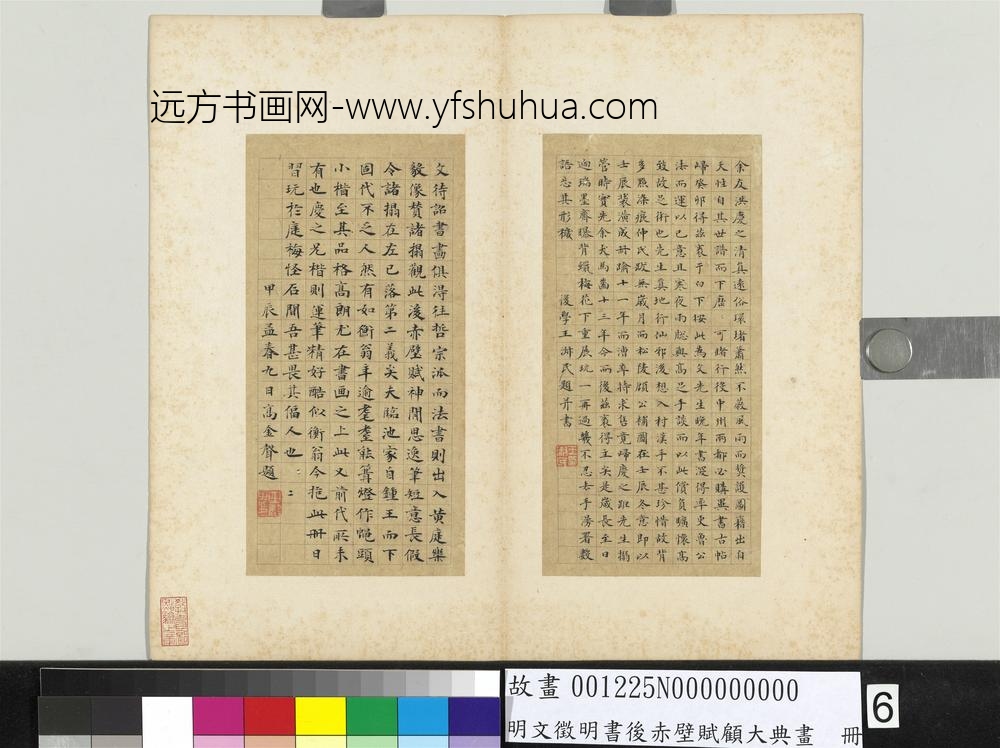 远方书画网-www.yfshuhua.com
余友洪慶之清真遠俗環堵蕭然不蔽風雨而篋護圖籍出自
天性自其世譜而下歷可睹行後中州兩都必購異書古帖
歸癸卯得茲裘于白下按此為文先生晚年書深得率史魯公
法而運以己意且寒夜雨窓與高足手談而以此償負曠懷高
致故是術也先生真地行仙邪後想入村漢手不甚珍惜故背
多點滌痕仲氏跋無歲月而松陵顧公補圖在壬辰冬意即以
壬辰裝潢成册踰十一年而漕專特求售竟歸慶之距先生搨
管時實先余犬馬齒十三年今而後茲裘得主矣是歲長至日
迴瑞墨齋曝背繽梅花下重展玩一再過幾不忍去手漫著數
語志其形穢
後學王 民題并書
文待詔書畫俱淂往哲宗派而法書則出入黄庭樂
毅像賛諸搨觀此後赤壁賦神閒思逸筆短意長假
令諸搨在左已落第二義矣夫臨池家自鍾王而下
固代不乏人然有如衡翁年逾耄耋能篝燈作蝇頭
小楷至其品格高朗尤在書画之上此又前代所未
有也慶之兄楷則運筆精好酷似衡翁今抱此册日
習玩於庭梅怪石間吾甚畏其偪人也
甲辰孟春九日高金聲題
故畫 001225N000000000
明文徵明書後赤壁賦顧大典畫 冊
6